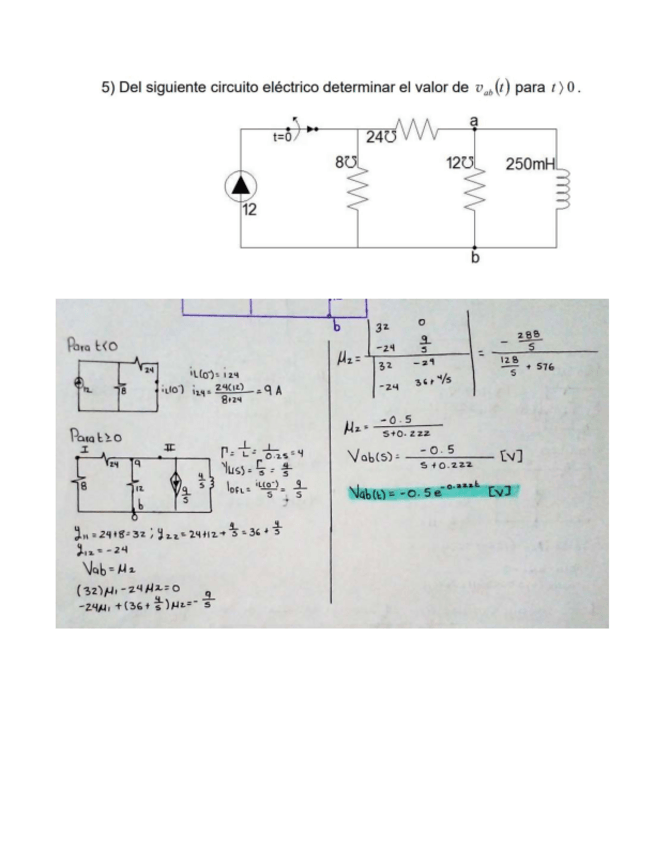 5) Del siguiente circuito eléctrico determinar el valor de v_ab(t) para t ⟩ 0.
t=0
24℧
a
8℧
12℧
250mH
12
b
b
Para t<0
24
12
8
iL(0⁻)
iL(0⁻)= i24
i24= 24(12)/8+24 = 9 A
Para t≥0
I
II
24
a
8
12
b
9/s
4/s
Γ= 1/L = 1/0.25 = 4
YL(s)= Γ/s = 4/s
IOFL= iL(0⁻)/s = 9/s
y11 = 24+8=32 ; y22= 24+12+ 4/s = 36 + 4/s
y12 = -24
Vab = μ2
(32)μ1 -24μ2=0
-24μ1 +(36+ 4/s)μ2=- 9/s
μ2=
32 0
-24 9/s
32 -24
-24 36+4/s
= - 288/s
128/s + 576
μ2= -0.5 / s+0.222
Vab(s)= -0.5 / s+0.222 [V]
Vab(t)= -0.5e^-0.222t [V]